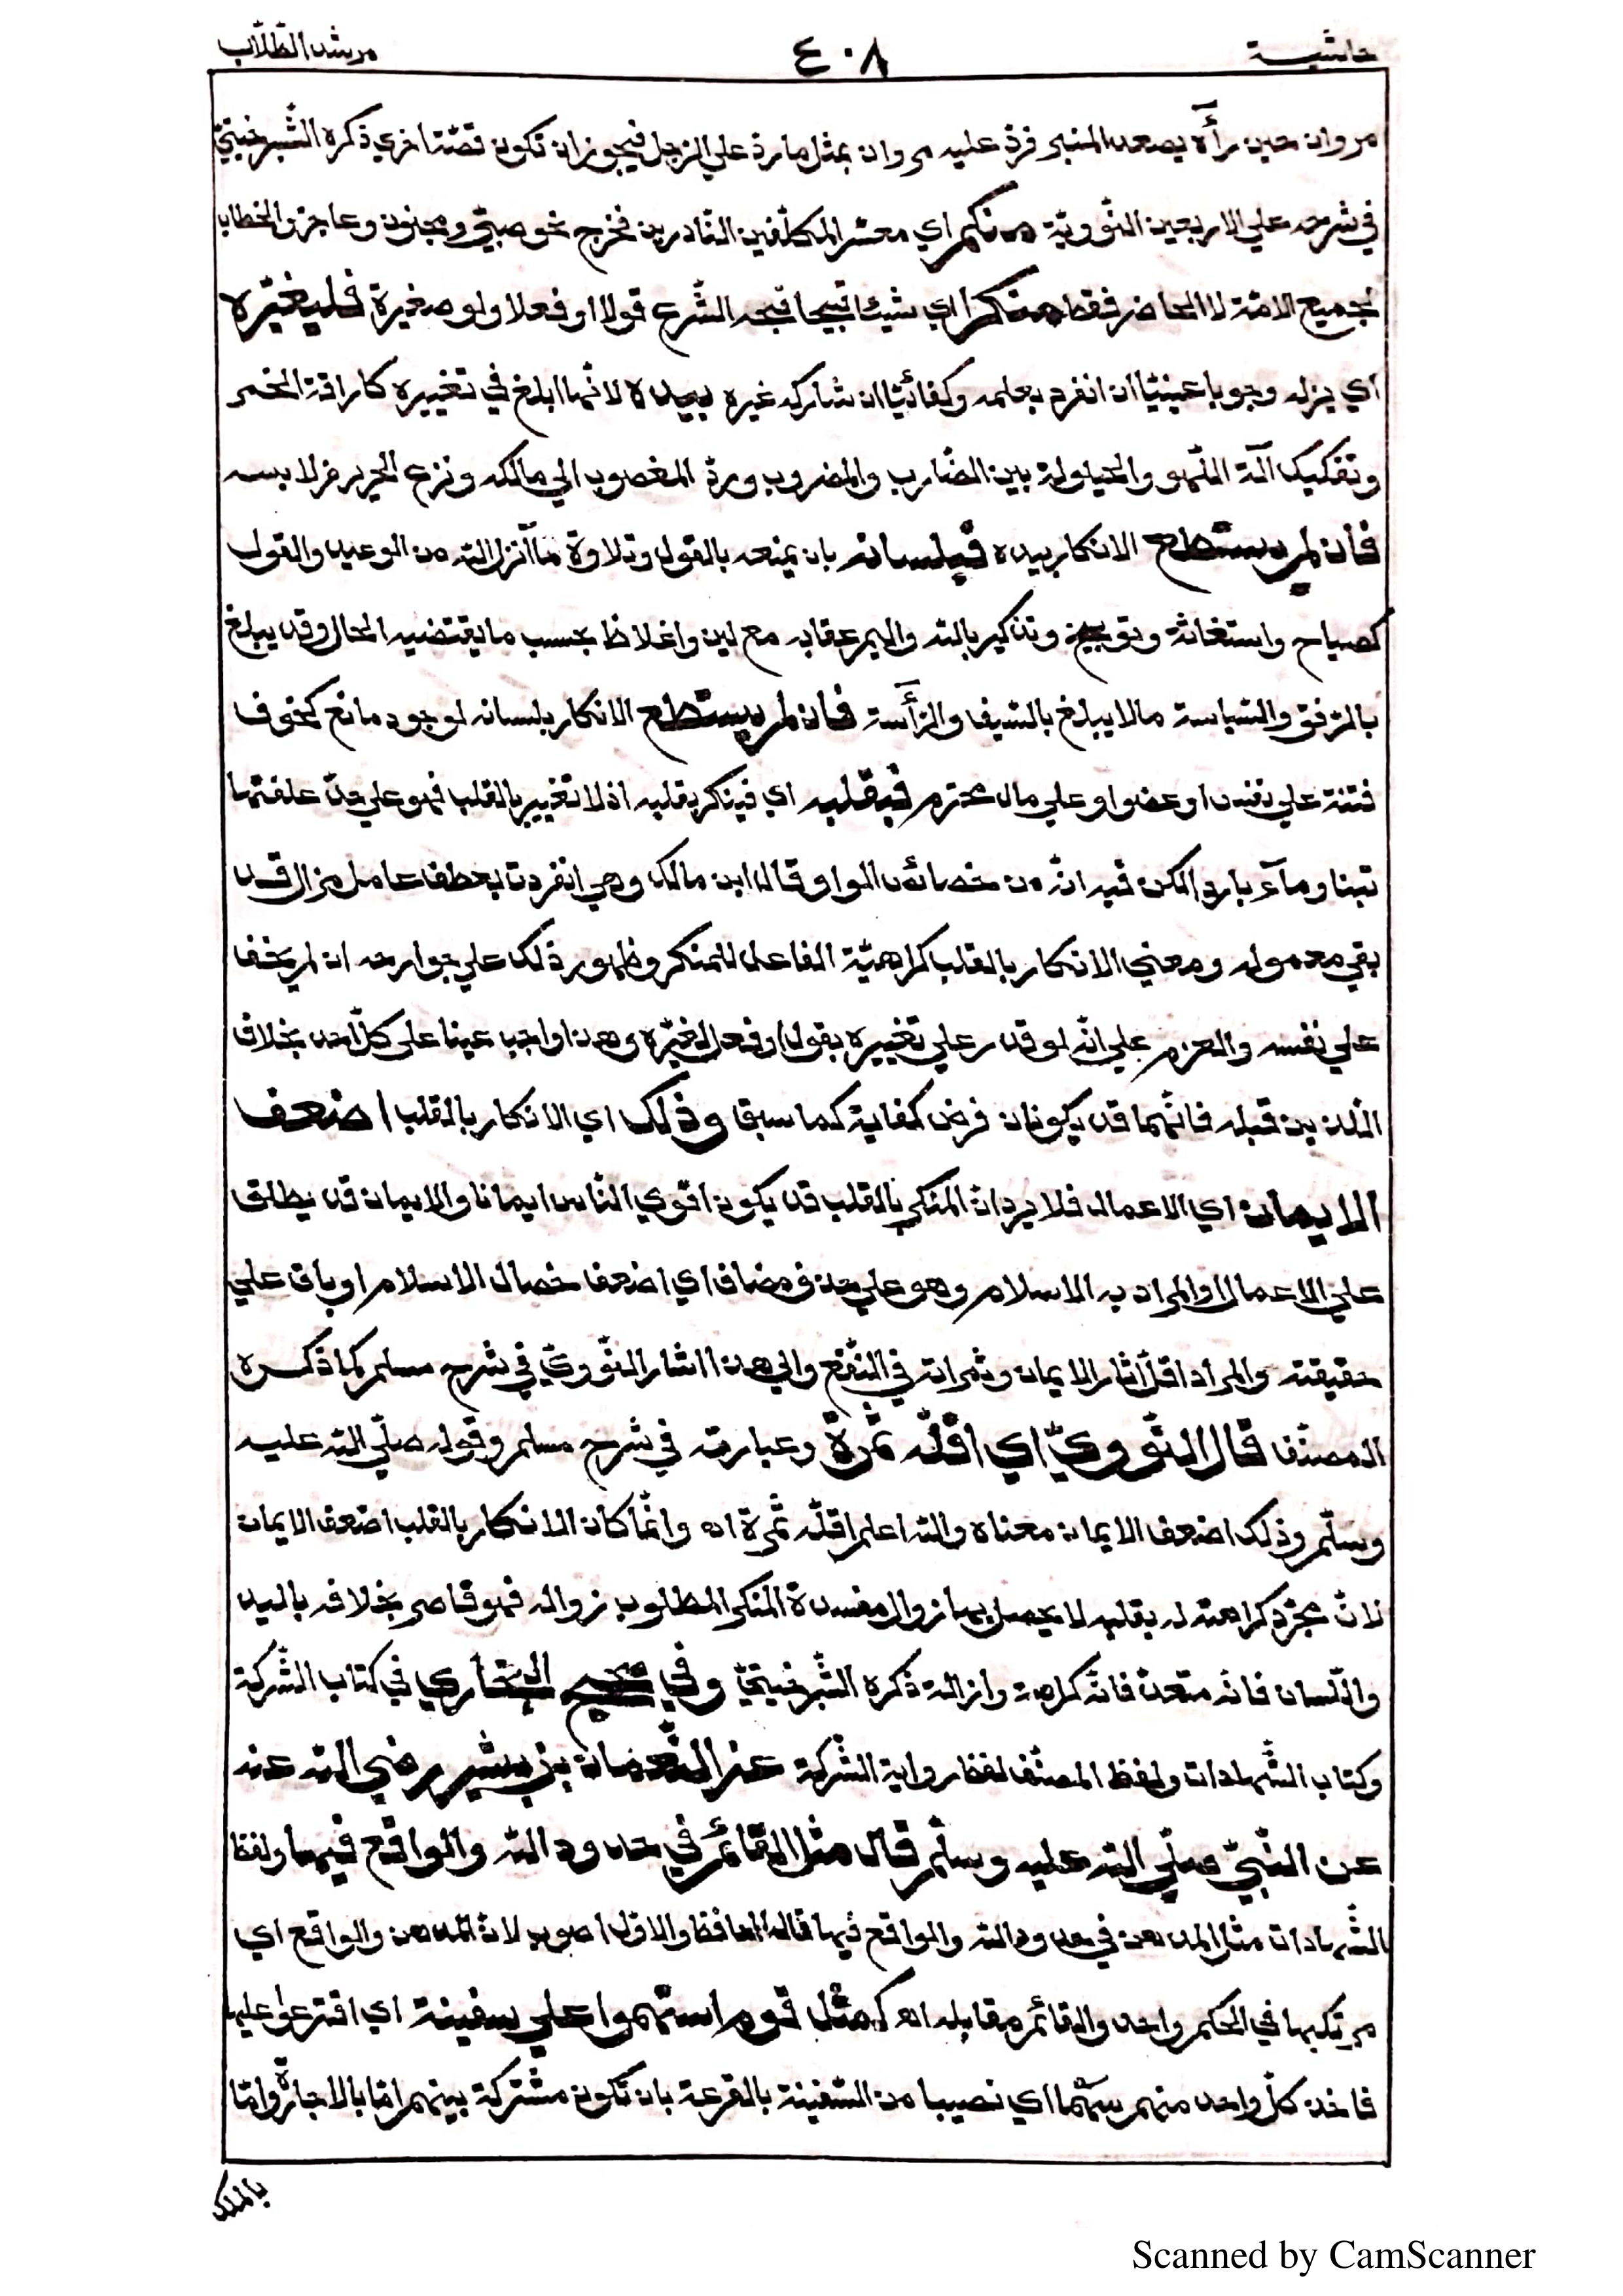 حاشية ٤٠٨ مرشد الطّلّاب
مروان حين رأٓه يصعد المنبر فردّ عليه مروان بمثل ما ردّ علي الرّجل فيجوز ان تكون قصّتا اخري ذكره الشّبرخيتيّ
في شرحه علي الاربعين النّوويّة منكم اي معشر المكلّفين القادرين فخرج نحو صبيّ ومجنون وعاجز والخطاب
لجميع الامّة لا الحاضر فقط منكرا اي شيئا قبيحا قبحه الشّرع قولا او فعلا ولو صغيرة فليغيّره
اي يزله وجوبا عينيّا ان انفرد بعلمه وكفائيّا ان شاركه غيره بيده لانّها ابلغ في تغييره كاراقة الخمر
وتفكيك آلة اللّهو والحيلولة بين الضّارب والمضروب وردّ المغصوب الي مالكه ونزع الحرير من لابسه
فان لم يستطع الانكار بيده فبلسانه بان يمنعه بالقول وتلاوة ما انزل الله من الوعيد والقول
كصياح واستغاثة وتوبيخ وتذكير بالله واليم عقابه مع لين واغلاظ بحسب ما يقتضيه الحال وقد يبلغ
بالرّفق والسّياسة ما لا يبلغ بالسّيف والرّأسة فان لم يستطع الانكار بلسانه لوجود مانع كخوف
فتنة علي نفس او عضو او علي مال محترم فبقلبه اي فينكر بقلبه اذ لا تغيير بالقلب فهو علي حدّ علفتها
تبنا ومآء باردا لكن فيه انّه من خصائص الواو قال ابن مالك وهي انفردت بعطف عامل مزال قد
بقي معموله ومعني الانكار بالقلب كراهيّة الفاعل للمنكر وظهور ذلك علي جوارحه ان لم يخف
علي نفسه والعزم علي انّه لو قدر علي تغييره بقول او فعل لغيّره وهذا واجب عينا على كلّ احد بخلاف
اللّذين قبله فانّهما قد يكونان فرض كفاية كما سبق وذلك اي الانكار بالقلب اضعف
الايمان اي الاعمال فلا يرد انّ المنكر بالقلب قد يكون اقوي النّاس ايمانا والايمان قد يطلق
علي الاعمال او المراد به الاسلام وهو علي حذف مضاف اي اضعف خصال الاسلام او باق علي
حقيقته والمراد اقلّ اثار الايمان وثمراته في النّفع والي هذا اشار النّوويّ في شرح مسلم كما ذكره
المصنّف قال النّوويّ اي اقلّه ثمرة وعبارته في شرح مسلم وقوله صلّي الله عليه
وسلّم وذلك اضعف الايمان معناه والله اعلم اقلّه ثمرة اه وانّما كان الانكار بالقلب اضعف الايمان
لانّ مجرّد كراهته له بقلبه لا يحصل بها زوال مفسدة المنكر المطلوب زواله فهو قاصر بخلافه باليد
واللّسان فانّه متعدّ فانّه كراهة وازالة ذكره الشّبرخيتيّ وفي صحيح البخاري في كتاب الشّركة
وكتاب الشّهادات ولفظ المصنّف لفظ رواية الشّركة عن النّعمان بن بشير رضي الله عنه
عن النّبيّ صلّي الله عليه وسلّم قال مثل القائم في حدود الله والواقع فيها ولفظ
الشّهادات مثل المدهن في حدود الله والواقع فيها قال الحافظ والاوّل اصوب لانّ المدهن والواقع اي
مرتكبها في الحكم واحد والقائم مقابله اه كمثل قوم استهموا علي سفينة اي اقترعوا عليها
فاخذ كلّ واحد منهم سهما اي نصيبا من السّفينة بالقرعة بان تكون مشتركة بينهم امّا بالاجارة وامّا
بالملك
Scanned by CamScanner